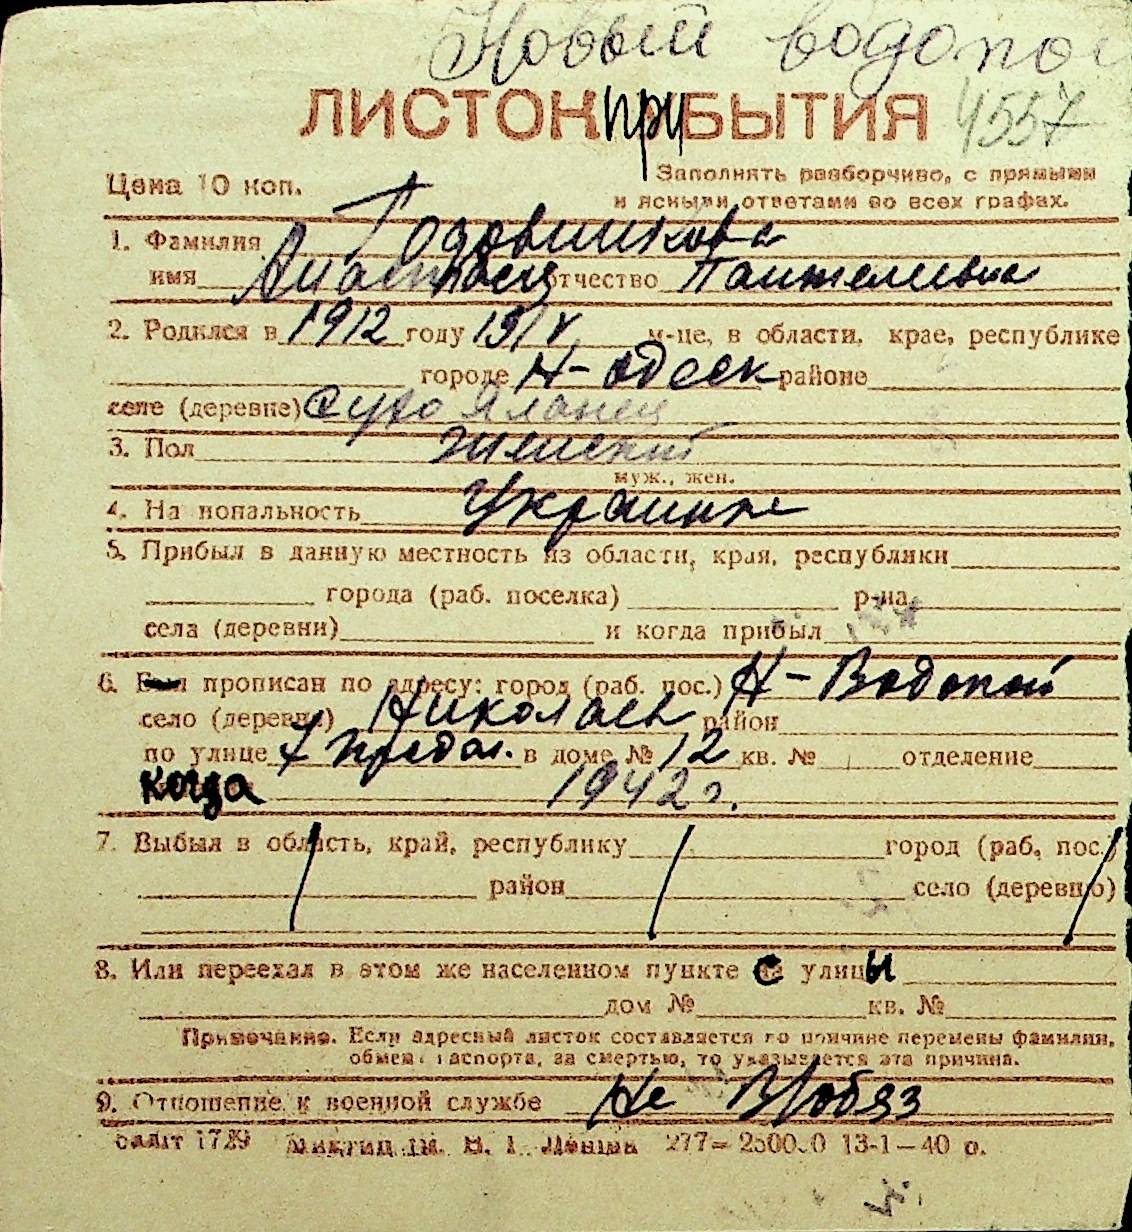 Новый водопой
ЛИСТОК при БЫТИЯ 4557
Цена 10 коп. Заполнять разборчиво, с прямыми
и ясными ответами во всех графах.
1. Фамилия Годовщикова
имя отчество Пантелеевна
2. Родился в 1912 году 15/V м-це, в области, крае, республике
городе Н-Одеск районе
селе (деревне) Сухо Яланец
3. Пол Женский
муж., жен.
4. Национальность Украинка
5. Прибыл в данную местность из области, края, республики
города (раб. поселка) р-на
села (деревни) и когда прибыл
6. прописан по адресу: город (раб. пос.) Н-Водопой
село (деревня) Николаев район
по улице 7 продол. в доме № 12 кв. № отделение
когда 1942 г.
7. Выбыл в область, край, республику город (раб. пос.)
район село (деревню)
8. Или переехал в этом же населенном пункте с улицы
дом № кв. №
Примечание. Если адресный листок составляется по причине перемены фамилии,
обмена паспорта, за смертью, то указывается эта причина.
9. Отношение к военной службе Не В/обяз
1729 277— 13-1—40 р.